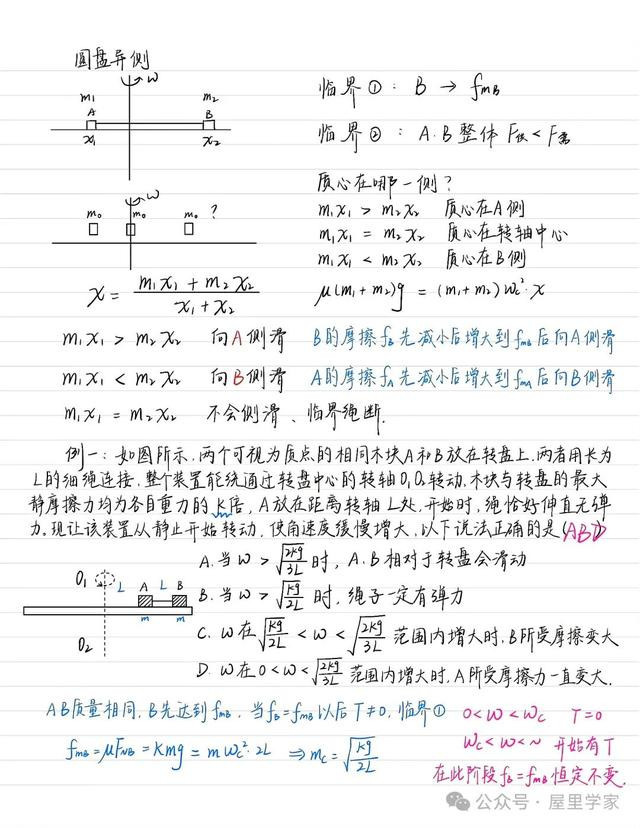 圆盘异侧
ω
m₁ m₂
A B
x₁ x₂
临界① : B → fmB
临界② : A.B整体 F供 < F需
ω
m₀ m₀ m₀ ?
质心在哪一侧?
m₁x₁ > m₂x₂ 质心在A侧
m₁x₁ = m₂x₂ 质心在转轴中心
m₁x₁ < m₂x₂ 质心在B侧
x = (m₁x₁ + m₂x₂)/(x₁ + x₂)
μ(m₁+m₂)g = (m₁+m₂)ωc²·x
m₁x₁ > m₂x₂ 向A侧滑 B的摩擦fB先减小后增大到fmB后向A侧滑
m₁x₁ < m₂x₂ 向B侧滑 A的摩擦fA先减小后增大到fmA后向B侧滑
m₁x₁ = m₂x₂ 不会侧滑、临界绳断.
例一:如图所示,两个可视为质点的相同木块A和B放在转盘上,两者用长为
L的细绳连接,整个装置能绕通过转盘中心的转轴O₁O₂转动,木块与转盘的最大
静摩擦力均为各自重力的K倍,A放在距离转轴L处,开始时,绳恰好伸直无弹
力.现让该装置从静止开始转动,使角速度缓慢增大,以下说法正确的是(ABD)
A.当ω>√(2kg/3L)时,A.B相对于转盘会滑动
B.当ω>√(kg/2L)时,绳子一定有弹力
C.ω在√(kg/2L)<ω<√(2kg/3L)范围内增大时,B所受摩擦变大
D.ω在0<ω<√(2kg/3L)范围内增大时,A所受摩擦力一直变大.
O₁ L A L B
m m
O₂
AB质量相同,B先达到fmB,当fB=fmB以后T≠0,临界①
fmB=μFNB=Kmg=mωc²·2L ⇒mc=√(kg/2L)
0<ω<ωc T=0
ωc<ω<~ 开始有T
在此阶段fB=fmB恒定不变.
公众号·屋里学家